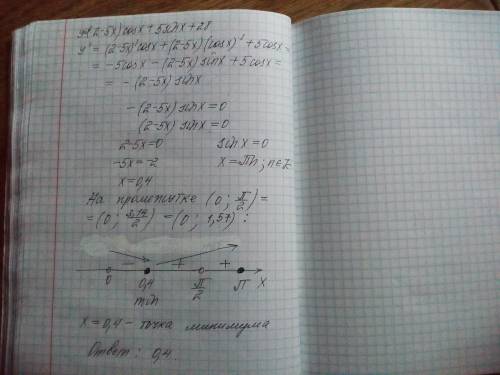 y=(2-5x)cosx+5sinx+28
y'=(2-5x)'cosx+(2-5x)(cosx)'+5cosx=
=-5cosx-(2-5x)sinx+5cosx=
=-(2-5x)sinx
-(2-5x)sinx=0
(2-5x)sinx=0
2-5x=0 sinx=0
-5x=-2 x=πn; n∈Z
x=0,4
На промежутке (0; π/2)=
=(0; 3,14/2)=(0; 1,57):
- + +
0 0,4 π/2 π x
min
x=0,4 - точка минимума
Ответ: 0,4.